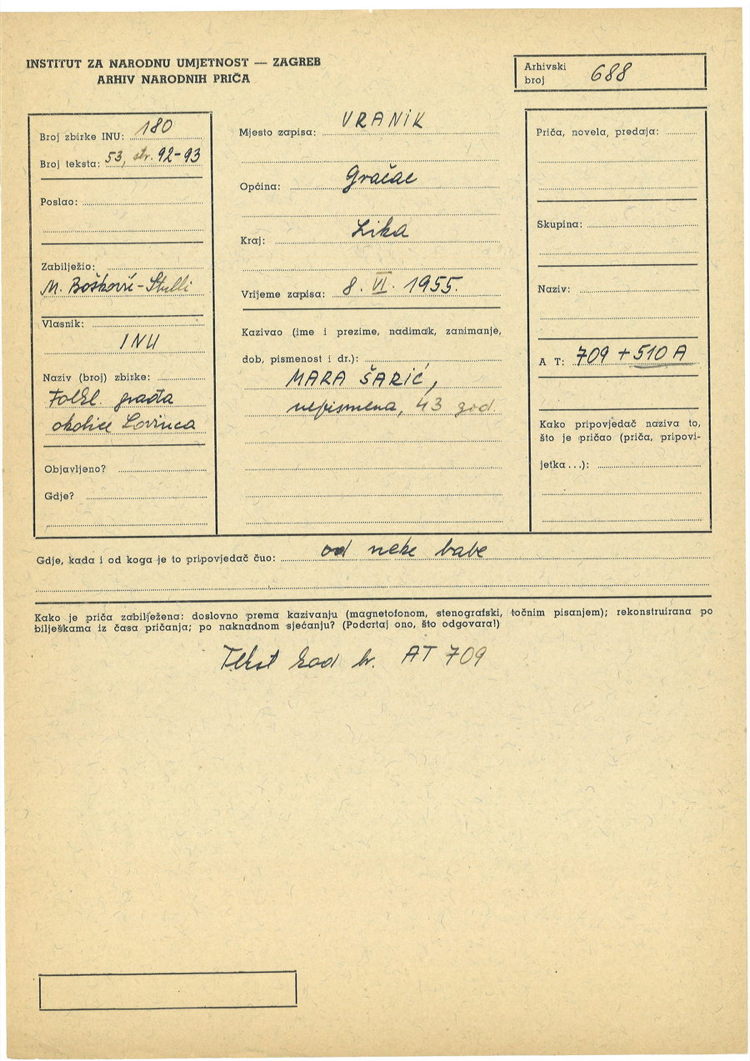 INSTITUT ZA NARODNU UMJETNOST — ZAGREB
ARHIV NARODNIH PRIČA
Arhivski broj 688
Broj zbirke INU: 180
Broj teksta: 53, str. 92-93
Poslao:
Zabilježio:
M. Bošković-Stulli
Vlasnik:
INU
Naziv (broj) zbirke:
Folkl. građa
okolice Lovinca
Objavljeno?
Gdje?
Mjesto zapisa: VRANIK
Općina: Gračac
Kraj: Lika
Vrijeme zapisa: 8. VI. 1955.
Kazivao (ime i prezime, nadimak, zanimanje,
dob, pismenost i dr.):
MARA ŠARIĆ,
nepismena, 43 god.
Priča, novela, predaja:
Skupina:
Naziv:
A T: 709 + 510 A
Kako pripovjedač naziva to,
što je pričao (priča, pripovi-
jetka...):
Gdje, kada i od koga je to pripovjedač čuo: od neke babe
Kako je priča zabilježena: doslovno prema kazivanju (magnetofonom, stenografski, točnim pisanjem); rekonstruirana po
bilješkama iz časa pričanja; po naknadnom sjećanju? (Podcrtaj ono, što odgovara!)
Tekst kod br. AT 709